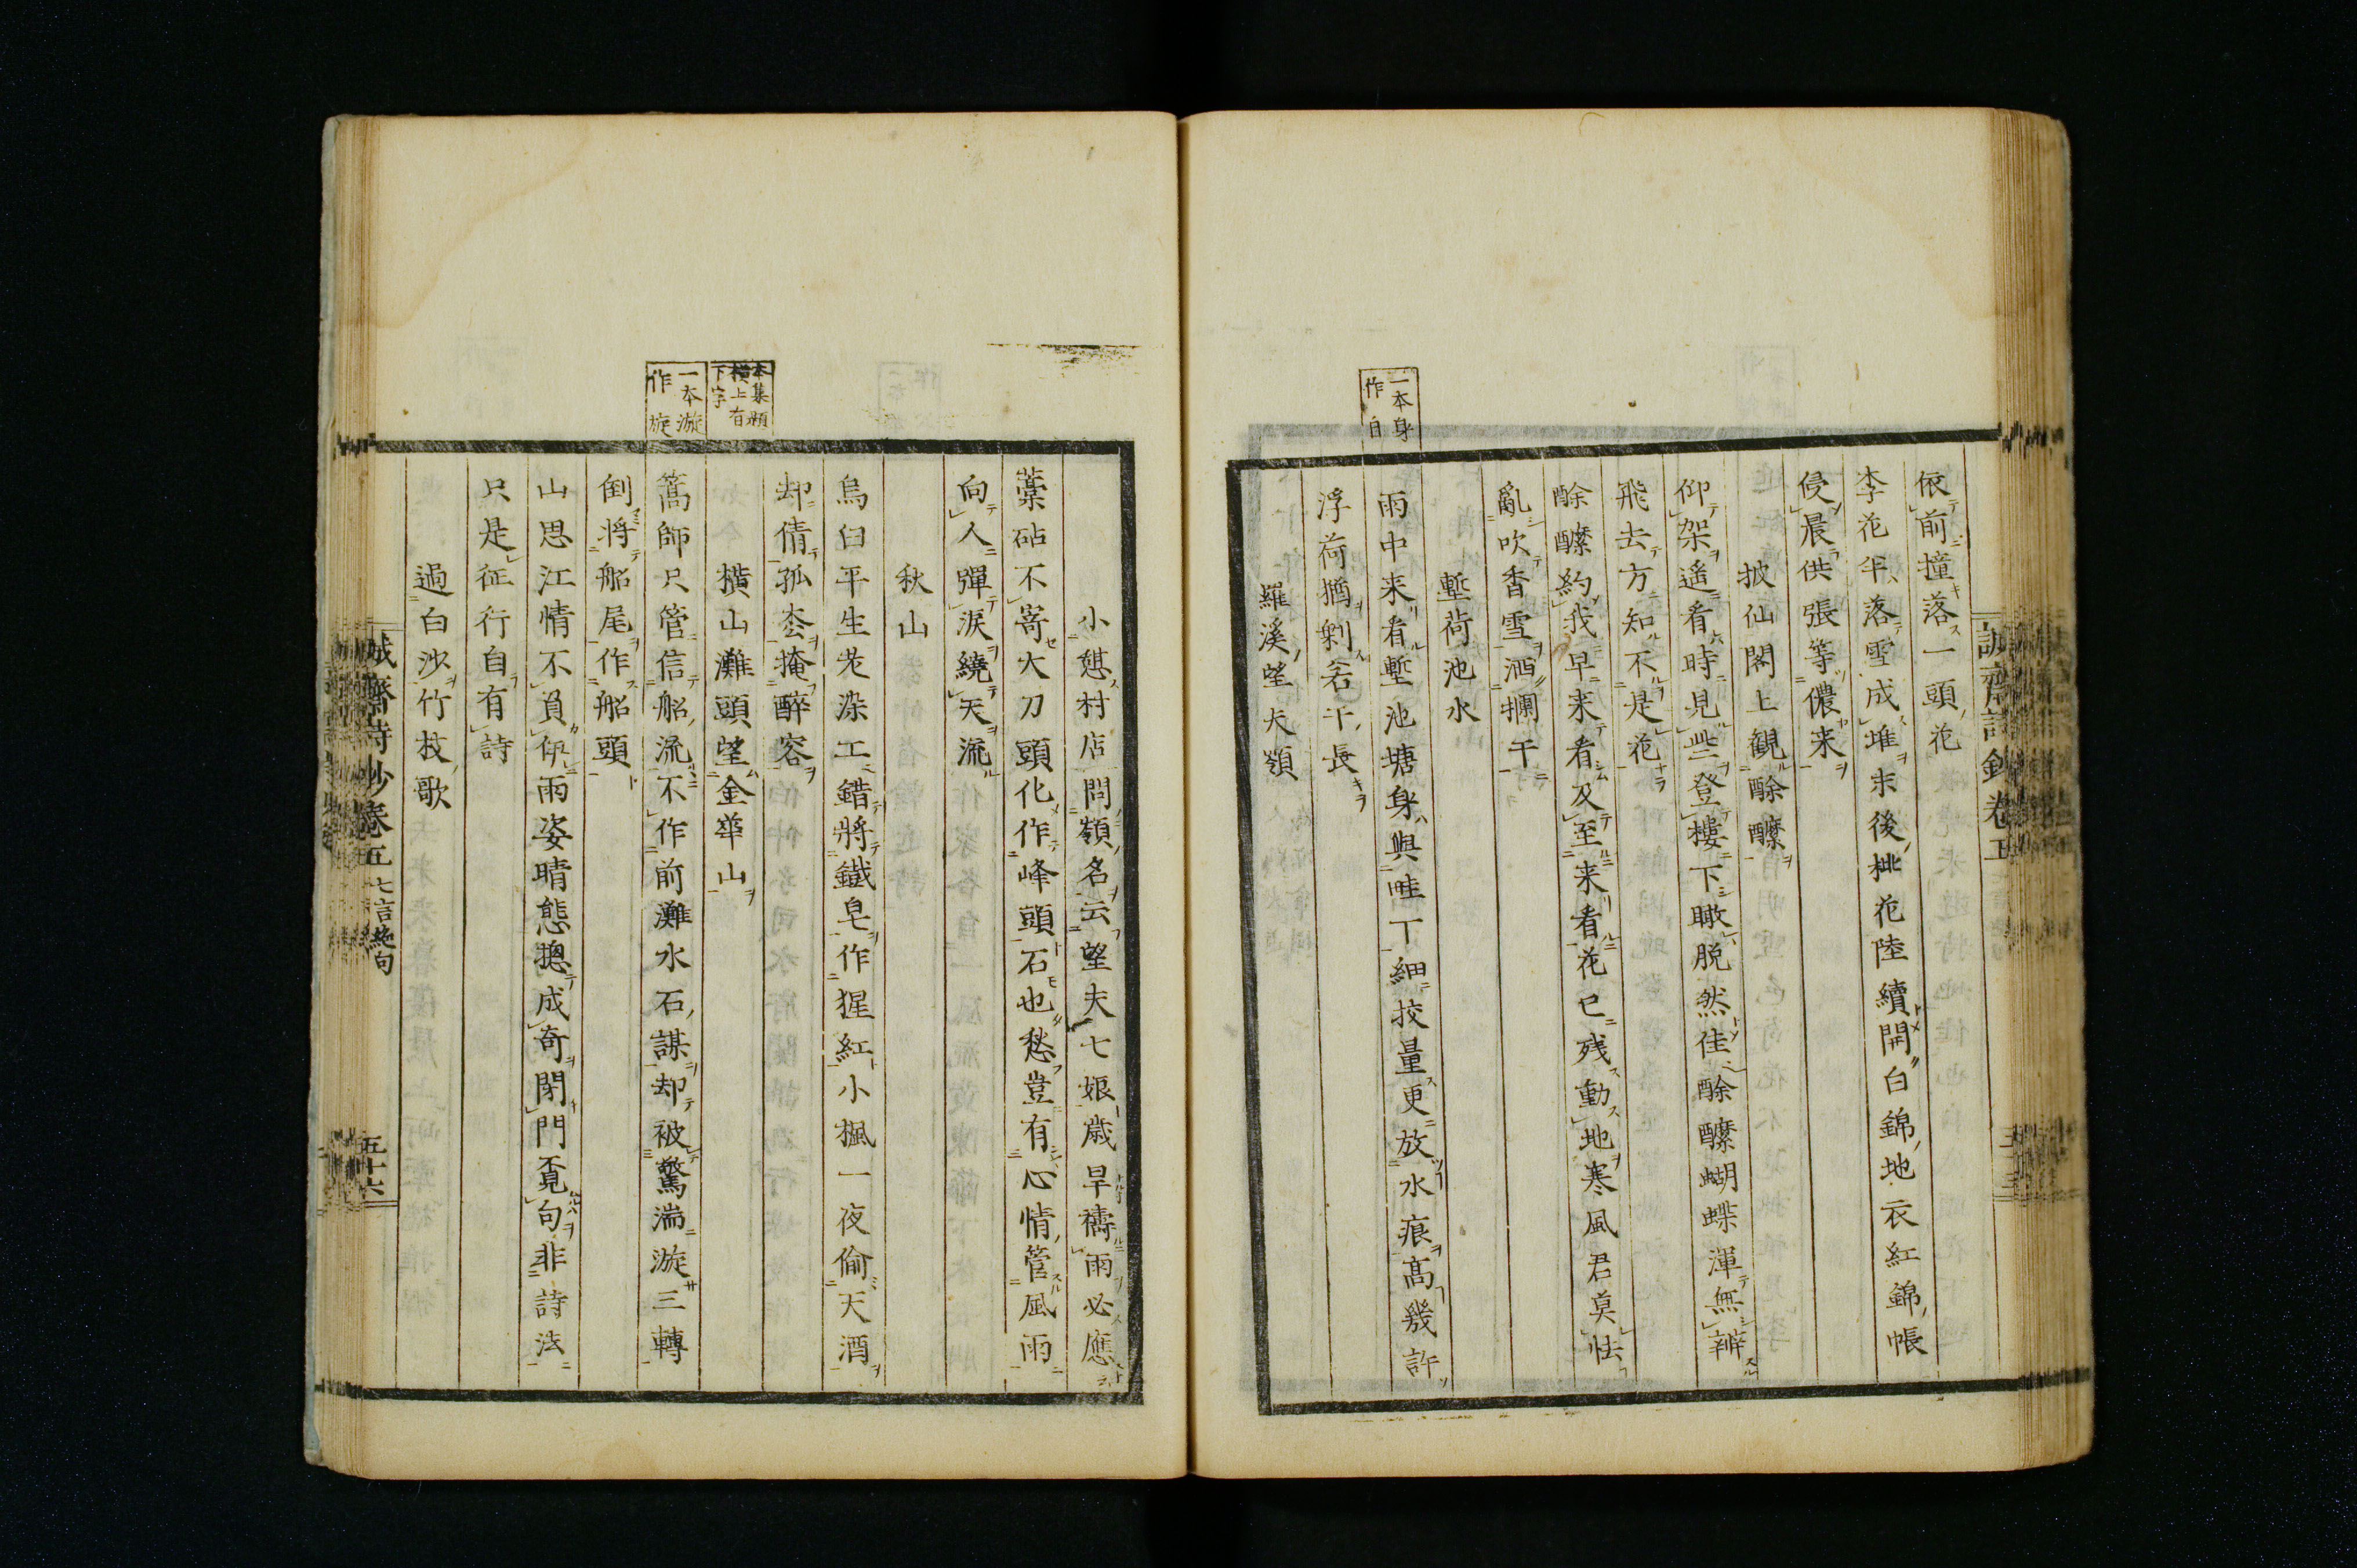 誠齋詩鈔卷五
依前撞落一頭花
李花半落雪成堆末後桃花陸續開白錦地衣紅錦帳
侵晨供張等儂来
披仙閣上観酴醾
仰架遥看時見些登樓下瞰脱然佳酴醾蝴蝶渾無辨
飛去方知不是花
酴醾約我早来看及至来看花已残動地寒風君莫怯
亂吹香雪洒攔干
塹荷池水
一本身
作自
雨中来看塹池塘身與畦丁細挍量更放水痕髙幾許
浮荷猶剰若干長
羅溪望夫嶺
小憇村店問嶺名云望夫七娘歳旱禱雨必應
藁砧不寄大刀頭化作峰頭石也愁豈有心情管風雨
向人彈淚繞天流
秋山
烏臼平生老染工錯將鐵皂作猩紅小楓一夜偷天酒
却倩孤枩掩醉容
本集題
横上有
下字
横山灘頭望金華山
一本漩
作旋
篙師只管信船流不作前灘水石謀却被驚湍漩三轉
倒將船尾作船頭
山思江情不負伊雨姿晴態摠成奇閉門覔句非詩法
只是征行自有詩
過白沙竹枝歌
誠齋詩鈔卷五 七言絶句 五十六